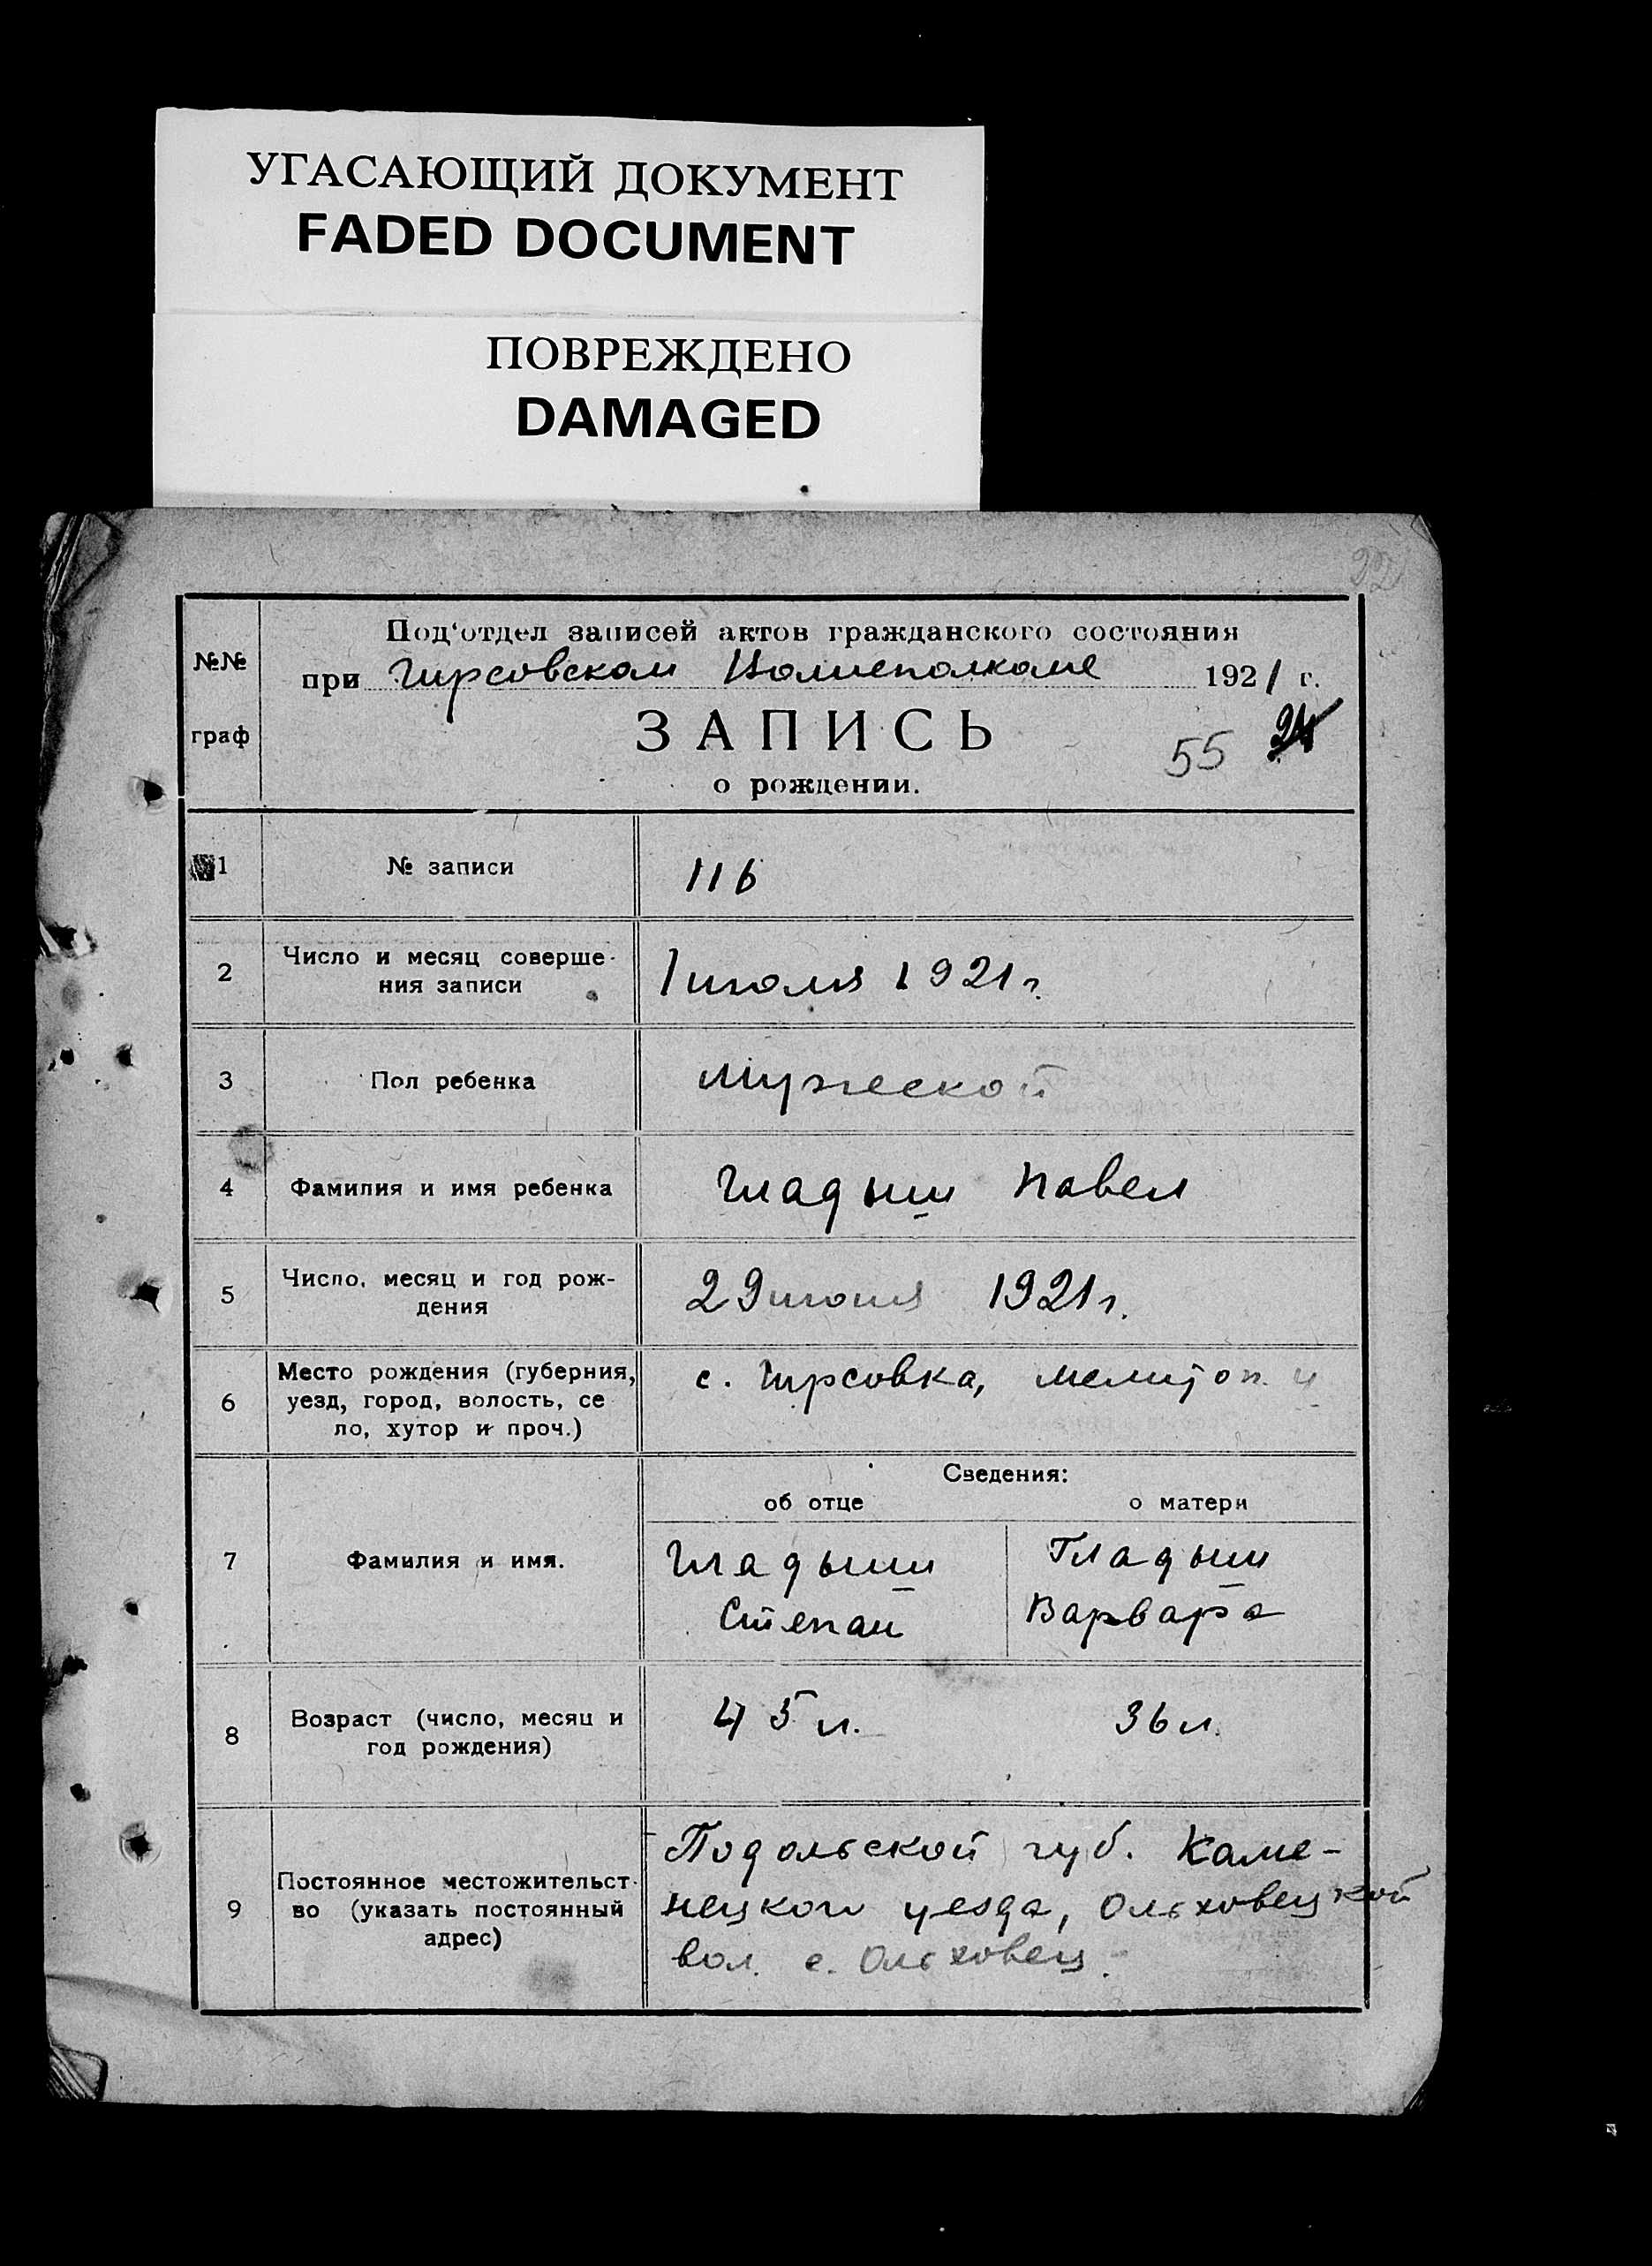 УГАСАЮЩИЙ ДОКУМЕНТ
FADED DOCUMENT
ПОВРЕЖДЕНО
DAMAGED
22
№№
граф
Под‘отдел записей актов гражданского состояния
при Гирсовском Волисполкоме 1921 г.
ЗАПИСЬ
55 24
о рождении.
1 № записи 116
2 Число и месяц соверше-
ния записи 1 июля 1921 г.
3 Пол ребенка мужеской
4 Фамилия и имя ребенка Гладыш Павел
5 Число, месяц и год рож-
дения 29 июня 1921 г.
6 Место рождения (губерния,
уезд, город, волость, се
ло, хутор и проч.) с. Гирсовка, Мелитоп. у
Сведения:
об отце о матери
7 Фамилия и имя. Гладыш Гладыш
Степан Варвара
8 Возраст (число, месяц и
год рождения) 45 л. 36 л.
9 Постоянное местожительст-
во (указать постоянный
адрес)
Подольской губ. Каме-
нецкого уезда, Ольховецкой
вол. с. Ольховец.